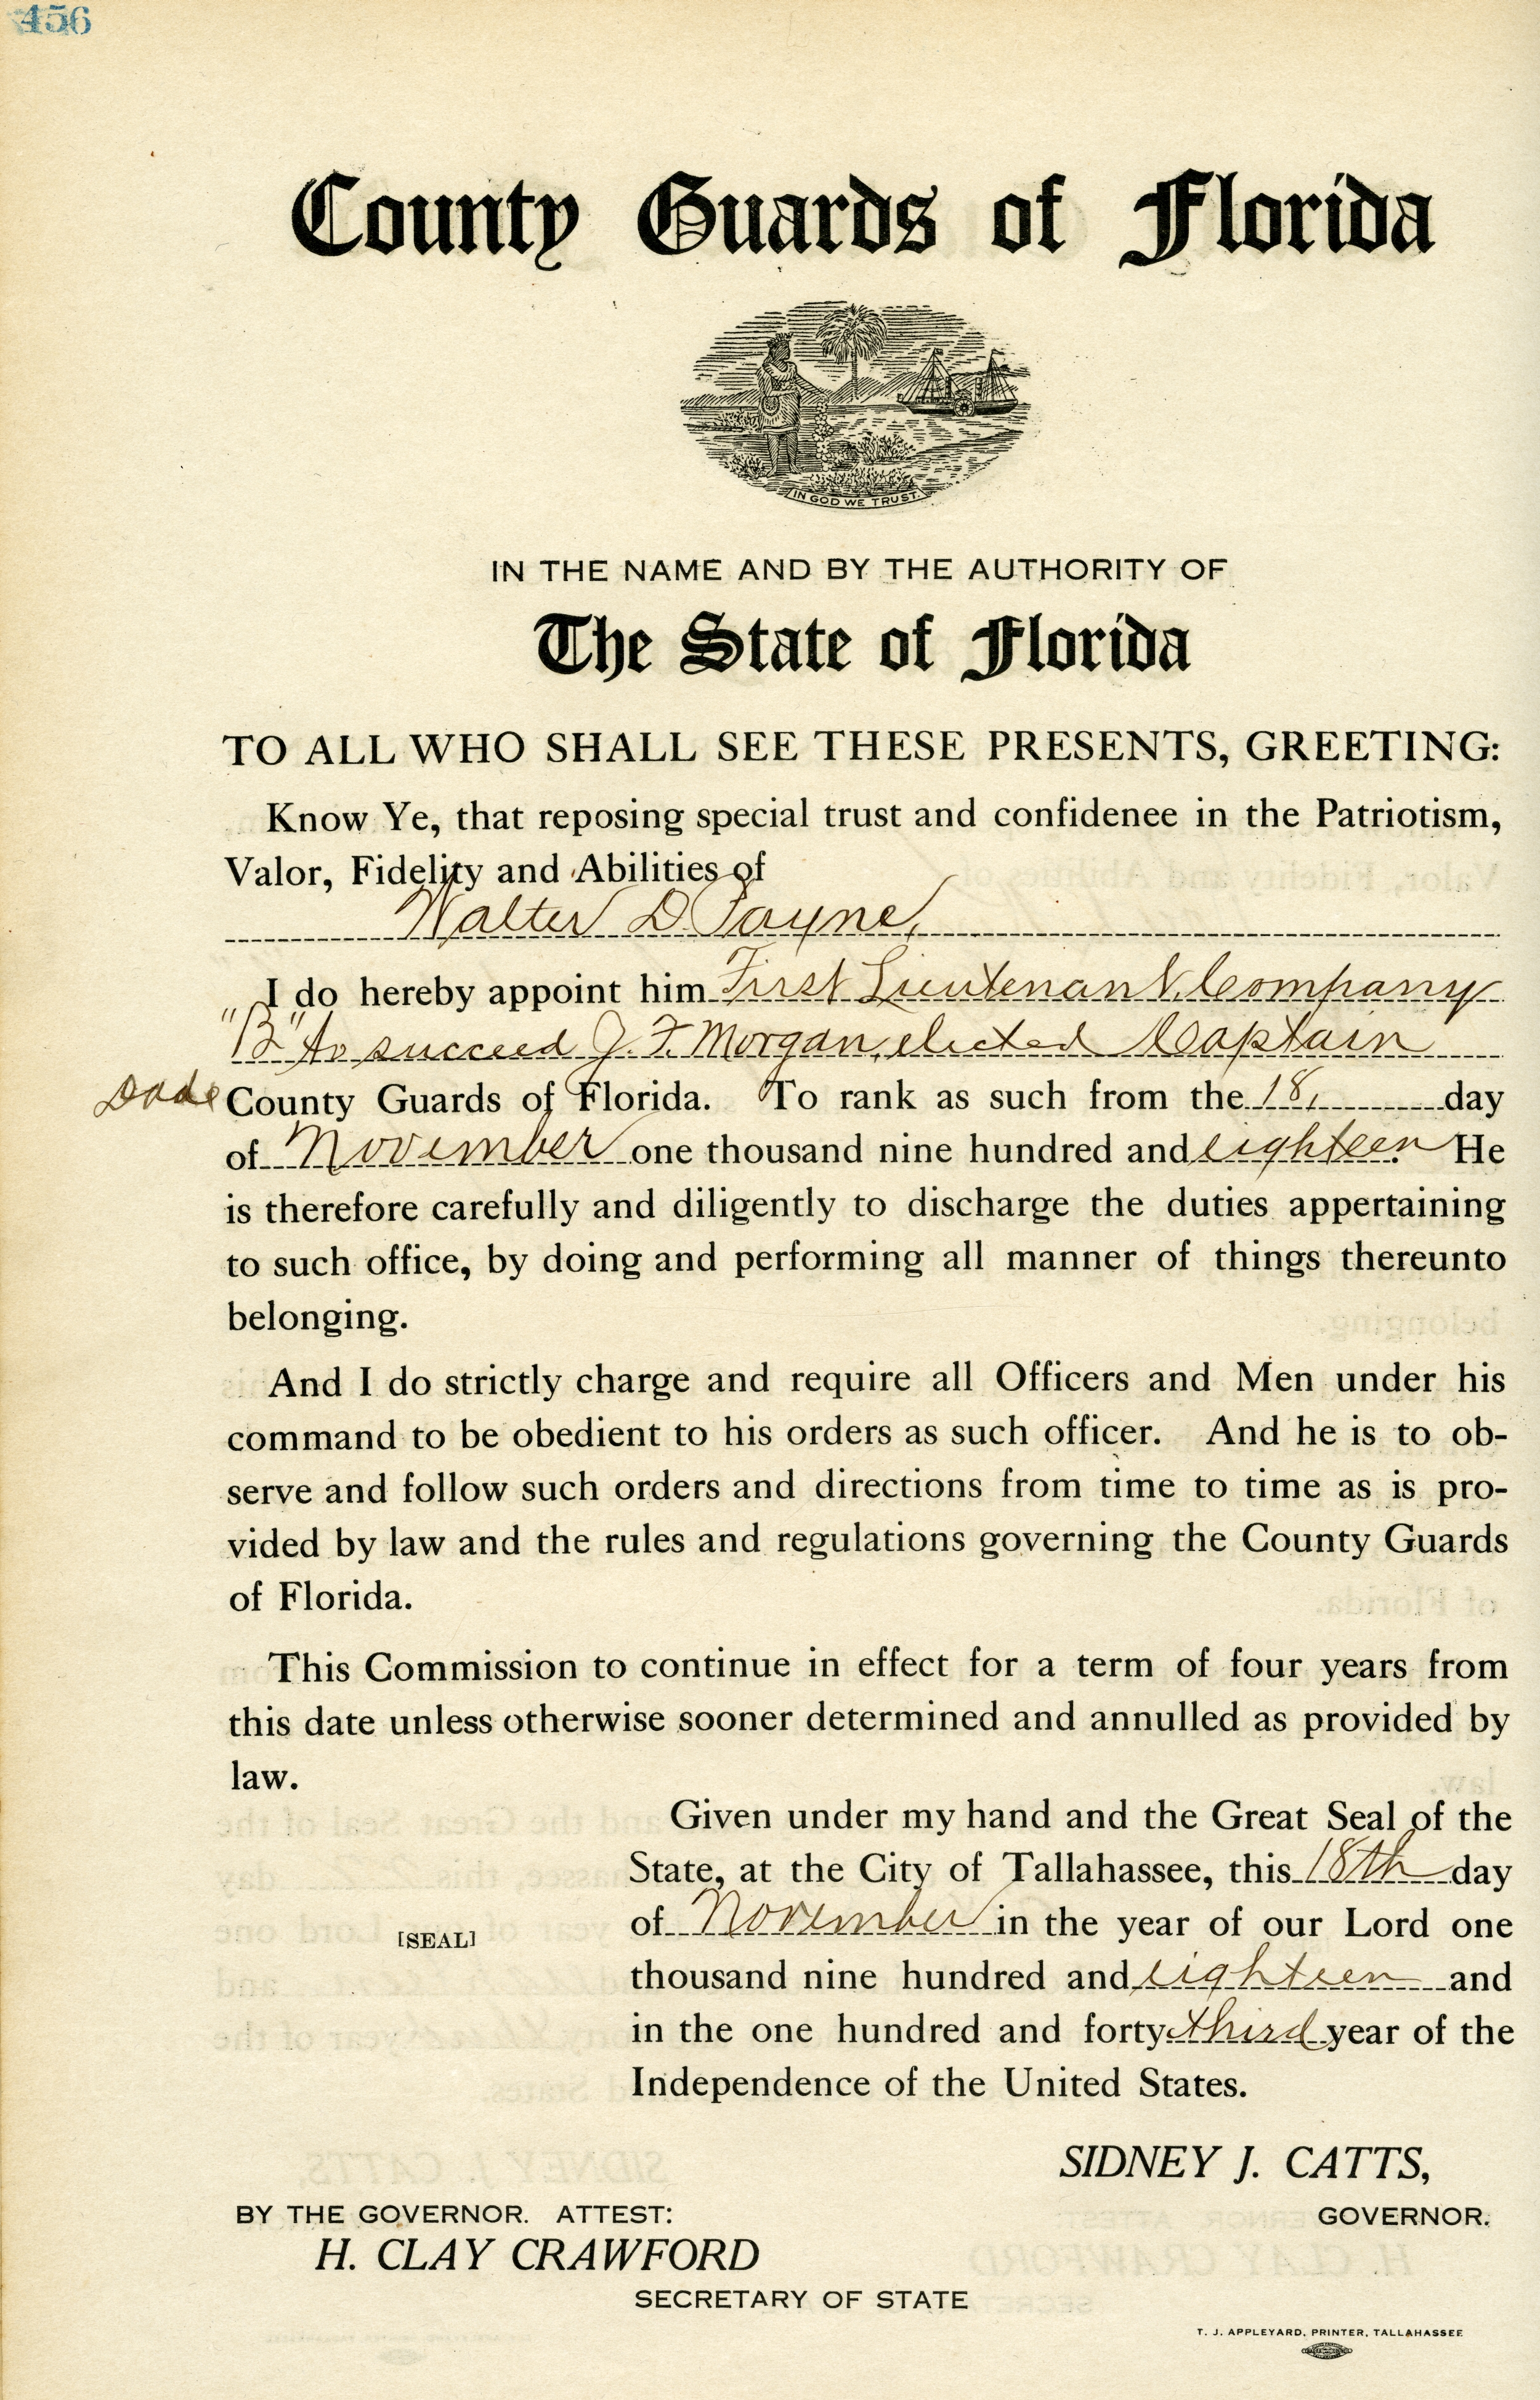 456
County Guards of Florida
IN GOD WE TRUST.
IN THE NAME AND BY THE AUTHORITY OF
The State of Florida
TO ALL WHO SHALL SEE THESE PRESENTS, GREETING:
Know Ye, that reposing special trust and confidenee in the Patriotism,
Valor, Fidelity and Abilities of
Walter D. Payne,
I do hereby appoint him First Lieutenant, Company
"B" to succeed J. F. Morgan, elected Captain
Dade County Guards of Florida. To rank as such from the 18, day
of November one thousand nine hundred and eighteen. He
is therefore carefully and diligently to discharge the duties appertaining
to such office, by doing and performing all manner of things thereunto
belonging.
And I do strictly charge and require all Officers and Men under his
command to be obedient to his orders as such officer. And he is to ob-
serve and follow such orders and directions from time to time as is pro-
vided by law and the rules and regulations governing the County Guards
of Florida.
This Commission to continue in effect for a term of four years from
this date unless otherwise sooner determined and annulled as provided by
law.
Given under my hand and the Great Seal of the
State, at the City of Tallahassee, this 18th day
of November in the year of our Lord one
[SEAL]
thousand nine hundred and eighteen and
in the one hundred and forty-third year of the
Independence of the United States.
SIDNEY J. CATTS,
GOVERNOR.
BY THE GOVERNOR. ATTEST:
H. CLAY CRAWFORD
SECRETARY OF STATE
T. J. APPLEYARD, PRINTER, TALLAHASSEE